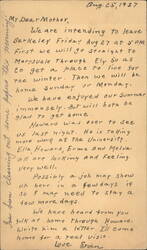 Aug 25, 1937
My Dear Mother,
We are intending to leave
Berkeley Friday Aug 27 at 5 PM
First we will go straight to
Marysvale through Ely so as
to get a place to live for
the winter. Then we will be
home Sunday or Monday.
We have enjoyed our Summer
immensely. But will both be
glad to get home.
Howard was over to see
us last night. He is taking
more work at the University.
Ella, Howard, Erma and Melva
all are looking and feeling
very well.
Possibly a job may show
up here in a few days if
so I may need to stay a
few more days.
We have heard from you
folk at home through Howard.
Write him a letter. I'll come
home for a real visit.
Love Evan